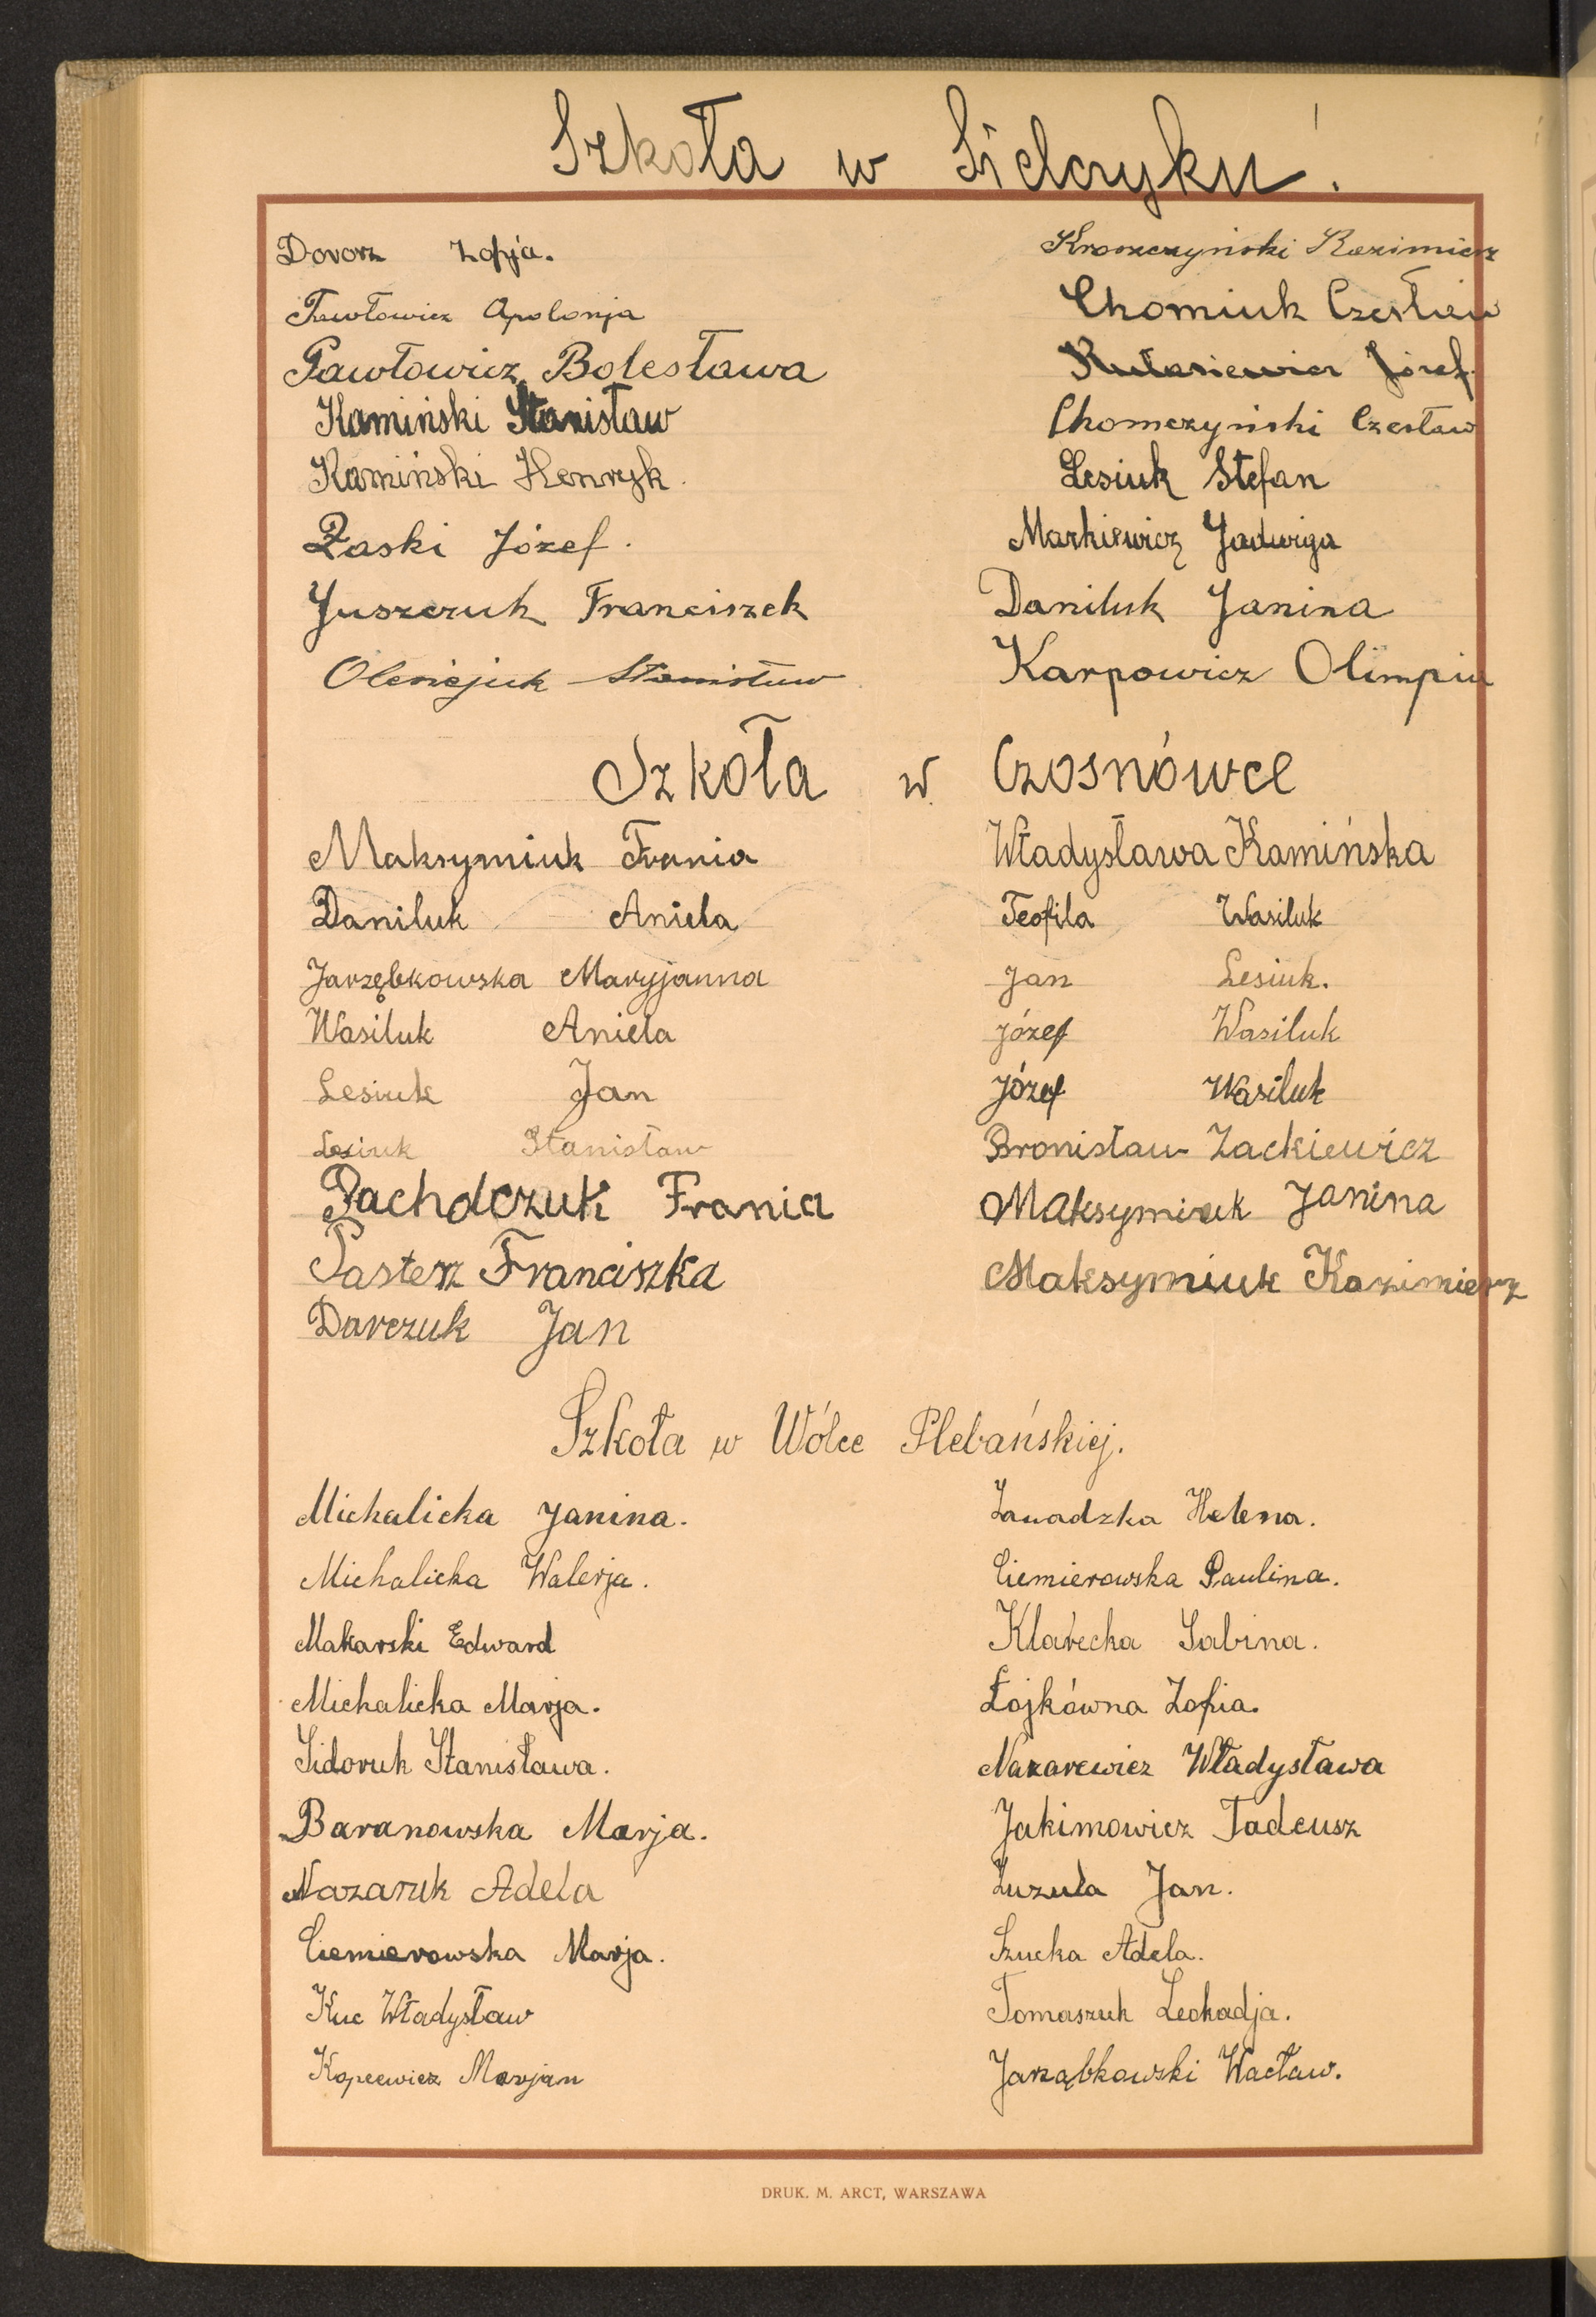 Szkoła w Sielczyku.
Dovorz Zofja.
Pawłowicz Apolonja
Pawłowicz Bolesława
Kamiński Stanisław
Kamiński Henryk.
Żaski Józef.
Juszczuk Franciszek
Oleniejuk Stanisław
Kroszczyński Kazimierz
Chomiuk Czesław
Józef.
Chomczyński Czesław
Lesiuk Stefan
Markiewicz Jadwiga
Daniluk Janina
Karpowicz Olimpia
Szkoła w Czosnówce
Maksymiuk Frania
Daniluk Aniela
Jarzębkowska Maryjanna
Wasiluk Aniela
Lesiuk Jan
Lesiuk Stanisław
Pachdczuk Frania
Pasterz Franciszka
Darczuk Jan
Władysława Kamińska
Teofila Wasiluk
Jan Lesiuk.
Józef Wasiluk
Józef Wasiluk
Bronisław Zackiewicz
Maksymiuk Janina
Maksymiuk Kazimierz
Szkoła w Wólce Plebańskiej.
Michalicka Janina.
Michalicka Walerja.
Makarski Edward
Michalicka Marja.
Sidoruk Stanisława.
Baranowska Marja.
Nazaruk Adela
Ciemierowska Marja.
Kuc Władysław
Kopcewicz Marjan
Zawadzka Helena.
Ciemierowska Paulina.
Klarecka Sabina.
Łojkówna Zofia.
Nazarewicz Władysława
Jakimowicz Tadeusz
Zuzula Jan.
Szucka Adela.
Tomaszuk Leokadja.
Jarząbkowski Wacław.
DRUK. M. ARCT, WARSZAWA